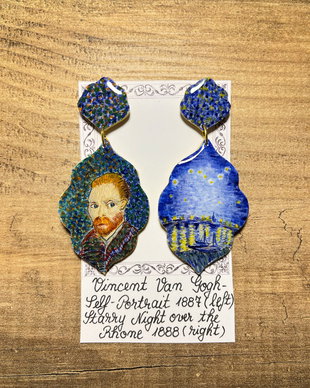 Vincent Van Gogh-
Self-Portrait 1887 (left)
Starry Night over the
Rhone 1888 (right)